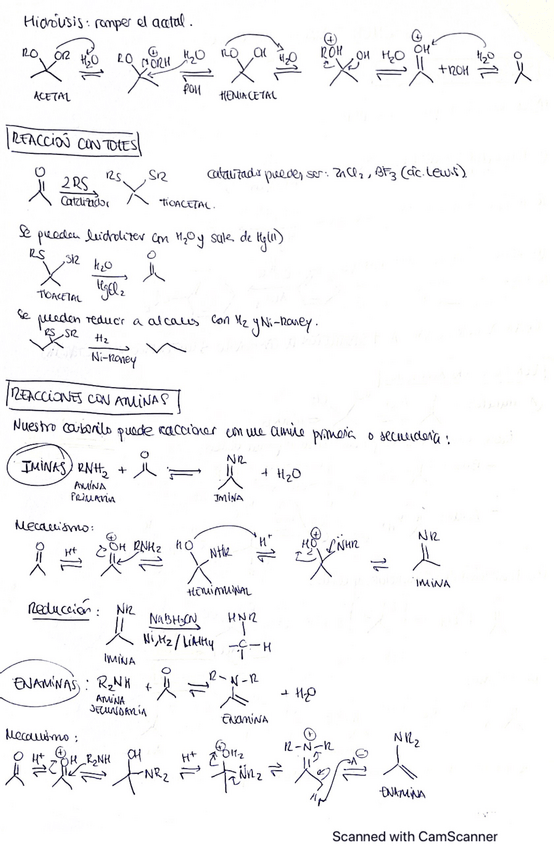 Hidrólisis: romper el acetal.
RO OR H₂O ⇌ RO ⊕ORH H₂O ⇌ ROH RO OH H₂O ⇌ ⊕ROH OH H₂O ⇌ ⊕OH + ROH H₂O ⇌ O
ACETAL HEMIACETAL
REACCIÓN CON TIOLES
O 2RS → Catalizador RS SR TIOACETAL. Catalizador pueden ser: ZnCl₂, BF₃ (ác. Lewis)
Se pueden hidrolizar con H₂O y sales de Hg(II)
RS SR H₂O → HgCl₂ O
TIOACETAL
Se pueden reducir a alcanos con H₂ y Ni-Raney.
RS SR H₂ → Ni-Raney
REACCIONES CON AMINAS
Nuestro carbonilo puede reaccionar con una amina primaria o secundaria:
IMINAS RNH₂ + O ⇌ NR + H₂O
AMINA PRIMARIA IMINA
Mecanismo:
O H⁺ ⇌ ⊕OH RNH₂ ⇌ HO NHR H⁺ ⇌ ⊕ HO NHR ⇌ NR
HEMIAMINAL IMINA
Reducción: NR NaBH₃CN → Ni, H₂ / LiAlH₄ HNR -C-H
IMINA
ENAMINAS: R₂NH + O ⇌ R-N-R + H₂O
AMINA SECUNDARIA ENAMINA
Mecanismo:
O H⁺ ⇌ ⊕OH R₂NH ⇌ OH NR₂ H⁺ ⇌ ⊕OH₂ NR₂ ⇌ R-N⊕-R H A⊖ ⇌ NR₂
ENAMINA
Scanned with CamScanner